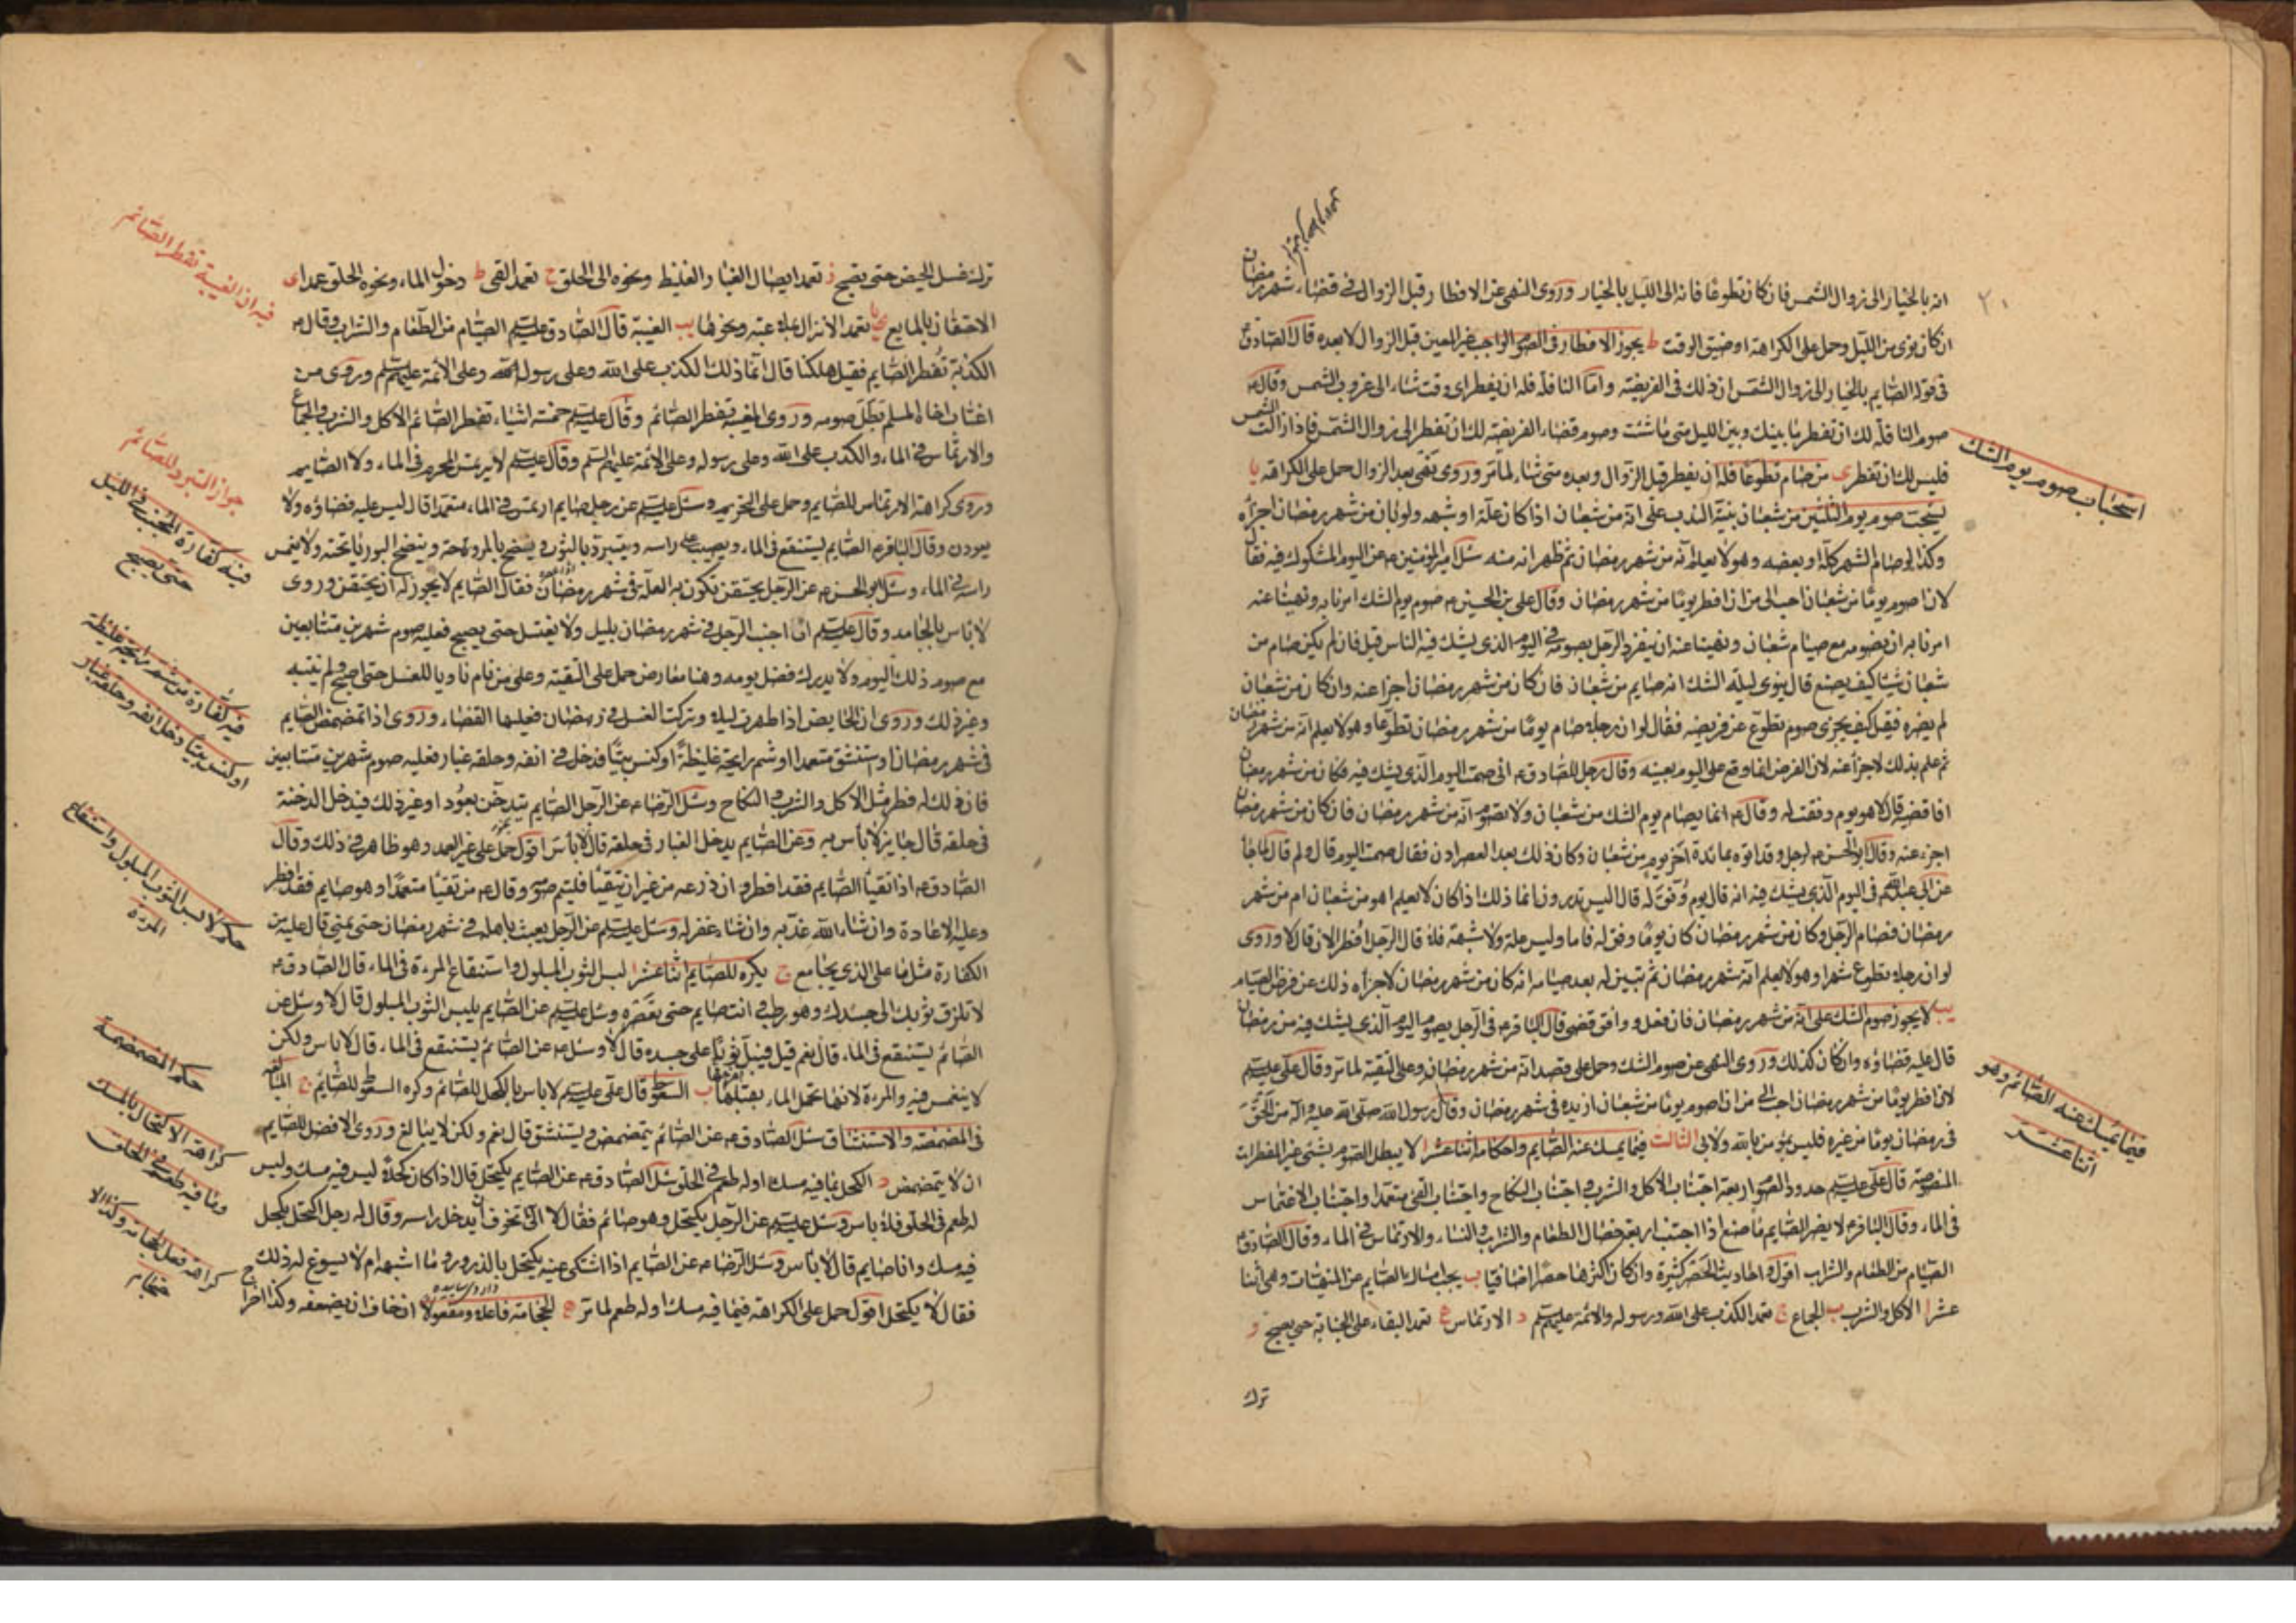 انه بالخيار الى زوال الشمس فان كان تطوعا فانه الى الليل بالخيار وروى النهى عن الافطار قبل الزوال فى قضاء شهر رمضان
ان كان نوى من الليل وحمل على الكراهة او ضيق الوقت ط يجوز الافطار فى الصوم الواجب غير المعين قبل الزوال لا بعده قال الصادق ع
فى قوله الصايم بالخيار الى زوال الشمس ان ذلك فى الفريضه واما النافلة فله ان يفطر اى وقت شاء الى غروب الشمس وقال ع
صوم النافلة لك ان تفطر ما بينك وبين الليل متى ما شئت وصوم قضاء الفريضة لك ان تفطر الى زوال الشمس فاذا زالت الشمس
فليس لك ان تفطر ى من صام تطوعا فله ان يفطر قبل الزوال وبعده متى شاء لما مر وروى نفى بعد الزوال حمل على الكراهة يا
يستحب صوم يوم الثلثين من شعبان بنية الندب على انه من شعبان اذا كان علة او شبهه ولو بان من شهر رمضان اجزأه
وكذا لو صام الشهر كله او بعضه وهو لا يعلم انه من شهر رمضان ثم ظهر انه منه سئل امير المؤمنين ع عن اليوم المشكوك فيه فقال
لان اصوم يوما من شعبان احب الى من ان افطر يوما من شهر رمضان وقال على بن الحسين ع صوم يوم الشك امرنا به ونهينا عنه
امرنا به ان نصومه مع صيام شعبان ونهينا عنه ان ينفرد الرجل بصومه فى اليوم الذى يشك فيه الناس قيل فان لم يكن صام من
شعبان شيئا كيف يصنع قال ينوى ليلة الشك انه صايم من شعبان فان كان من شهر رمضان اجزا عنه وان كان من شعبان
لم يضره فقيل كيف يجزى صوم تطوع عن فريضه فقال لو ان رجلا صام يوما من شهر رمضان تطوعا وهو لا يعلم انه من شهر رمضان
ثم علم بذلك لاجزا عنه لان الفرض انما وقع على اليوم بعينه وقال رجل للصادق ع انى صمت اليوم الذى يشك فيه فكان من شهر رمضان
افاقضيه قال لا هو يوم وفقت له وقال ع انما يصام يوم الشك من شعبان ولا يصوم انه من شهر رمضان فان كان من شهر رمضان
اجزء عنه وقال ابو الحسن ع لرجل وقد اتوه بمائدة آخر يوم من شعبان وكان ذلك بعد العصر ادن فقال صمت اليوم قال ولم قال لما جاء
عن ابى عبد الله ع فى اليوم الذى يشك فيه انه قال يوم وفق له قال اليس تدرون انما ذلك اذا كان لا يعلم اهو من شعبان ام من شهر
رمضان فصام الرجل وكان من شهر رمضان كان يوما وفق له فاما وليس علة ولا شبهة فلا قال الرجل افطر الان قال لا وروى
لو ان رجلا تطوع شهرا وهو لا يعلم انه شهر رمضان ثم تبين له بعد صيامه انه كان من شهر رمضان لاجزأه ذلك عن فرض الصيام
يب لا يجوز صوم الشك على انه من شهر رمضان فان فعل ووافق قضى قال الباقر ع فى الرجل يصوم اليوم الذى يشك فيه من رمضان
قال عليه قضاؤه وان كان كذلك وروى النهى عن صوم الشك وحمل على قصد انه من شهر رمضان وعلى التقية لما مر وقال على عليه السلم
لان افطر يوما من شهر رمضان احب الى من ان اصوم يوما من شعبان ازيده فى شهر رمضان وقال رسول الله صلى الله عليه واله من الحق
فى رمضان يوما من غيره فليس بمؤمن بالله ولا بى الثالث فيما يمسك عنه الصايم واحكامه اثنا عشر ا لا يبطل الصوم بشىء غير المفطرات
المنصوصة قال على عليه السلم حدود الصوم اربعة اجتناب الاكل والشرب و اجتناب النكاح واجتناب القىء متعمدا واجتناب الاغتماس
فى الماء وقال الباقر ع لا يضر الصايم ما صنع اذا اجتنب اربع خصال الطعام والشراب والنساء والارتماس فى الماء وقال الصادق ع
الصيام من الطعام والشراب اقول احاديث الحصر كثيرة وان كان اكثرها حصرا اضافيا ب يجب امساك الصايم عن المنهيات وهى اثنا
عشر ا الاكل والشرب ب الجماع ج تعمد الكذب على الله ورسوله والائمة عليهم السلم د الارتماس ه تعمد البقاء على الجنابة حتى يصبح و
ترك
استحباب صوم يوم الشك
فيما يمسك عنه الصائم وهو
اثنا عشر
ترك غسل الحيض حتى يصبح ز تعمد ايصال الغبار الغليظ ونحوه الى الحلق ح تعمد القى ط دخول الماء ونحوه الحلق عمدا ى
الاحتقان بالمايع يا تعمد الانزال بملاعبة ونحوها يب الغيبة قال الصادق عليه السلم الصيام من الطعام والشراب وقال ع
الكذبة تفطر الصايم فقيل هلكنا قال انما ذلك الكذب على الله وعلى رسول الله وعلى الائمة عليهم السلم وروى من
اغتاب اخاه المسلم بطل صومه وروى الغيبة تفطر الصائم وقال عليه السلم خمسة اشياء تفطر الصائم الاكل والشرب والجماع
والارتماس فى الماء والكذب على الله وعلى رسوله وعلى الائمة عليهم السلم وقال عليه السلم لا يرتمس المحرم فى الماء ولا الصايم
وروى كراهة الارتماس للصايم وحمل على التحريم وسئل عليه السلم عن رجل صايم ارتمس فى الماء متعمدا قال ليس عليه قضاؤه ولا
يعودن وقال الباقر ع الصايم يستنقع فى الماء ويصب على راسه ويتبرد بالثوب وينضح بالمروحة وينضح البوريا تحته ولا يغمس
راسه فى الماء وسئل ابو الحسن ع عن الرجل يحتقن تكون به العلة فى شهر رمضان فقال الصايم لا يجوز له ان يحتقن وروى
لا باس بالجامد وقال عليه السلم اذا اجنب الرجل فى شهر رمضان بليل ولا يغتسل حتى يصبح فعليه صوم شهرين متتابعين
مع صوم ذلك اليوم ولا يدرك فضل يومه وهنا معارض حمل على التقية وعلى من نام ناويا للغسل حتى اصبح ولم ينتبه
وغير ذلك وروى ان الحايض اذا طهرت ليلا وتركت الغسل فى رمضان فعليها القضاء وروى اذا تمضمض الصايم
فى شهر رمضان او استنشق متعمدا او شم رايحة غليظة او كنس بيتا فدخل فى انفه وحلقه غبار فعليه صوم شهرين متتابعين
فان ذلك له فطر مثل الاكل والشرب و النكاح وسئل الرضا ع عن الرجل الصايم يتدخن بعود او غير ذلك فيدخل الدخنة
فى حلقه قال جايز لا باس به وعن الصايم يدخل الغبار فى حلقه قال لا باس اقول حمل على غير العمد وهو ظاهر فى ذلك وقال
الصادق ع اذا تقيأ الصايم فقد افطر وان ذرعه من غير ان يتقيأ فليتم صومه وقال ع من تقيأ متعمدا وهو صايم فقد افطر
وعليه الاعادة وان شاء الله عذبه وان شاء غفر له وسئل عليه السلم عن الرجل يعبث باهله فى شهر رمضان حتى يمنى قال عليه من
الكفارة مثل ما على الذى يجامع ج يكره للصايم اثنا عشر ا لبس الثوب المبلول واستنقاع المرءة فى الماء قال الصادق ع
لا تلزق ثوبك الى جسدك وهو رطب و انت صايم حتى تعصره وسئل عليه السلم عن الصايم يلبس الثوب المبلول قال لا وسئل عن
الصائم يستنقع فى الماء قال نعم قيل فيبل ثوبا على جسده قال لا وسئل ع عن الصائم يستنقع فى الماء قال لا باس ولكن
لا ينغمس فيه والمرءة لانها تحمل الماء بقبلها ب السعوط قال على عليه السلم لا باس بالكحل للصائم وكره السعوط للصائم ج المبالغة
فى المضمضة والاستنشاق سئل الصادق ع عن الصائم يتمضمض ويستنشق قال نعم ولكن لا يبالغ وروى الافضل للصايم
ان لا يتمضمض د الكحل بما فيه مسك او له طعم فى الحلق سئل الصادق ع عن الصايم يكتحل قال اذا كان كحلا ليس فيه مسك وليس
له طعم فى الحلق فلا باس وسئل عليه السلم عن الرجل يكتحل وهو صائم فقال لا انى اتخوف ان يدخل راسه وقال له رجل اكتحل بكحل
فيه مسك وانا صايم قال لا باس وسئل الرضا ع عن الصايم اذا اشتكى عينه يكتحل بالذرور وما اشبهه ام لا يسوغ له ذلك
فقال لا يكتحل اقول حمل على الكراهة فيما فيه مسك او له طعم لما مر ه الحجامة فاعلا ومفعولا ان خاف ان يضعفه وكذا اخراج
فيه ان الغيبة تفطر الصائم
جواز التبرد للصائم
فيه كفارة المجنب فى الليل
حتى يصبح
فيه كفارة من شم رايحة غليظة
او كنس بيتا دخل انفه وحلقه غبار
حكم لابس الثوب المبلول واستنقاع
المرءة
حكم المضمضة
كراهة الاكتحال بالمسك
وما فيه طعم فى الحلق
كراهة فعل الحجامة وكذا الا